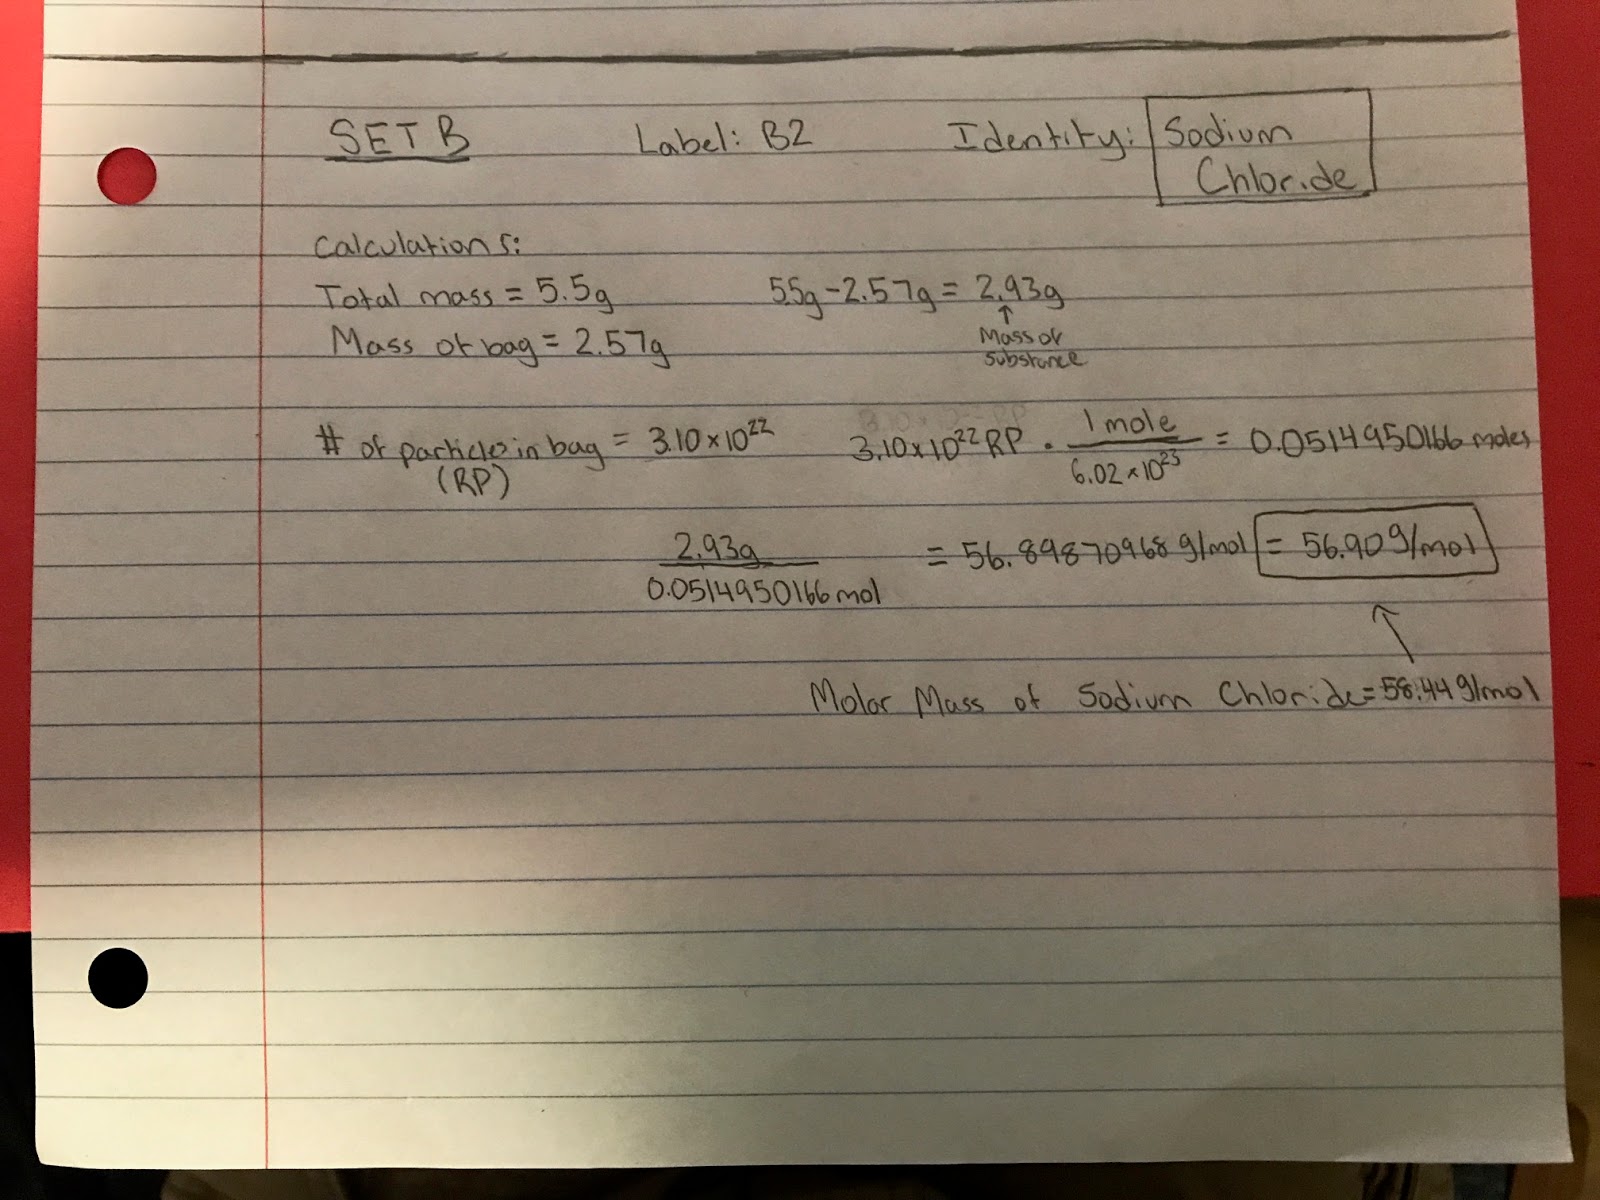 SET B Label: B2 Identity: Sodium
Chloride
Calculations:
Total mass = 5.5g 5.5g - 2.57g = 2.93g
↑
Mass of bag = 2.57g Mass of
substance
# of particles in bag = 3.10 × 10²² 3.10 × 10²² RP · 1 mole / 6.02 × 10²³ = 0.0514950166 moles
(RP)
2.93g / 0.0514950166 mol = 56.89870968 g/mol = 56.90 g/mol
Molar Mass of Sodium Chloride = 58.44 g/mol